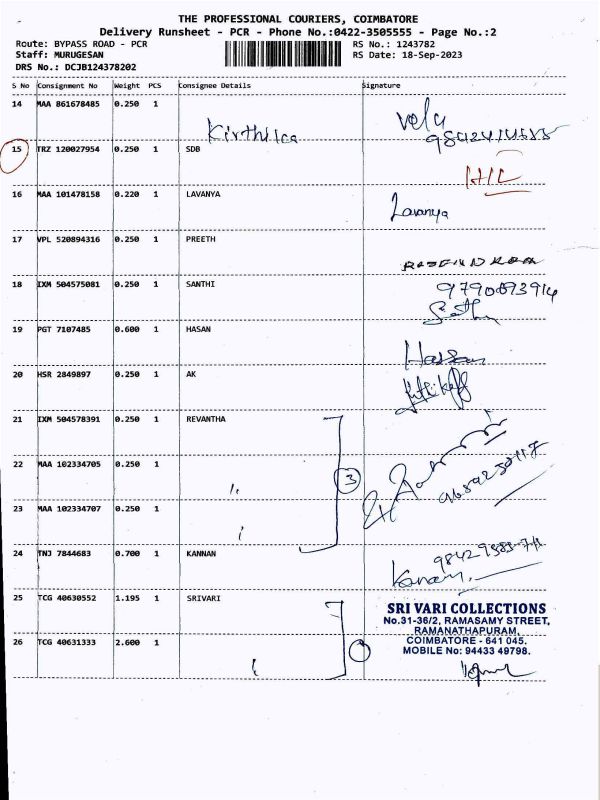 THE PROFESSIONAL COURIERS, COIMBATORE
Delivery Runsheet - PCR - Phone No.:0422-3505555 - Page No.:2
Route: BYPASS ROAD - PCR RS No.: 1243782
Staff: MURUGESAN RS Date: 18-Sep-2023
DRS No.: DCJB124378202
S No Consignment No Weight PCS Consignee Details Signature
14 MAA 861678485 0.250 1 Kirthika
15 TRZ 120027954 0.250 1 SDB
16 MAA 101478158 0.220 1 LAVANYA Lavanya
17 VPL 520894316 0.250 1 PREETH
18 IXM 504575081 0.250 1 SANTHI
19 PGT 7107485 0.600 1 HASAN Hassan
20 HSR 2849897 0.250 1 AK
21 IXM 504578391 0.250 1 REVANTHA
22 MAA 102334705 0.250 1 3
23 MAA 102334707 0.250 1
24 TNJ 7844683 0.700 1 KANNAN
25 TCG 40630552 1.195 1 SRIVARI
SRI VARI COLLECTIONS
No.31-36/2, RAMASAMY STREET,
RAMANATHAPURAM,
COIMBATORE - 641 045.
MOBILE No: 94433 49798.
26 TCG 40631333 2.600 1